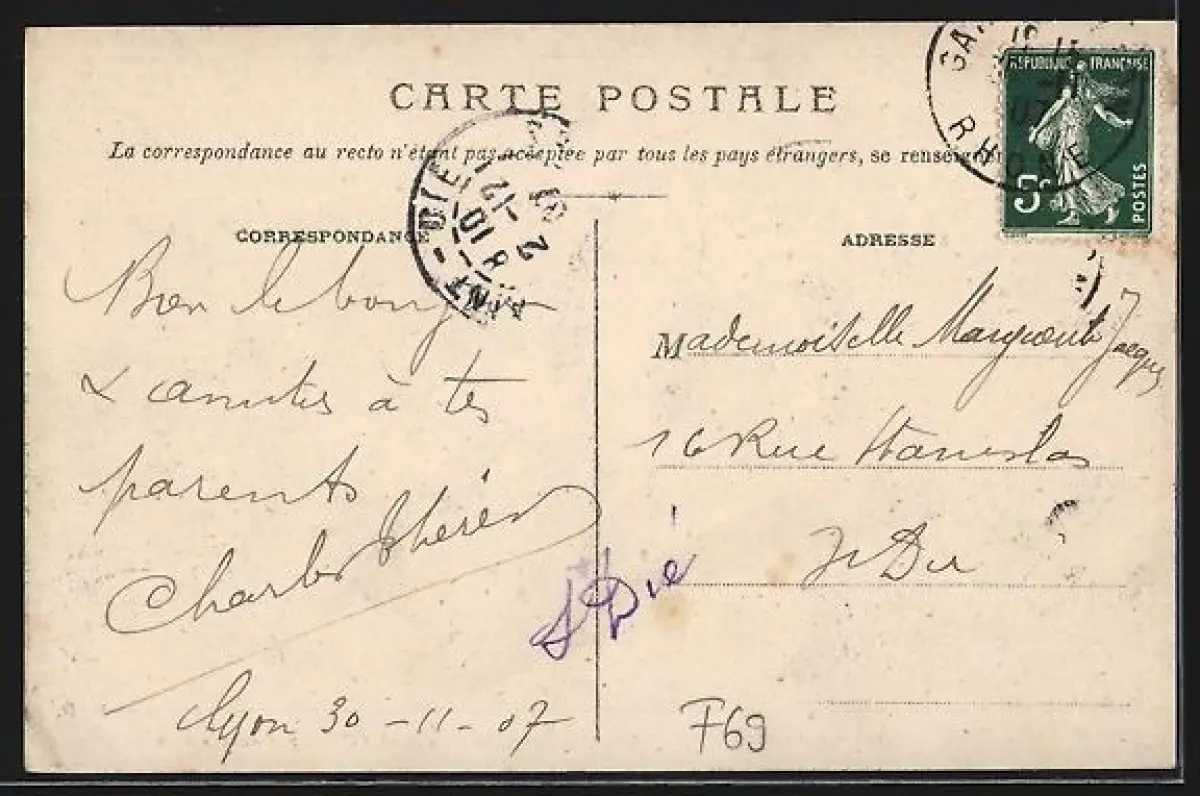 CARTE POSTALE
La correspondance au recto n'étant pas acceptée par tous les pays étrangers, se renseigner
RÉPUBLIQUE FRANÇAISE
5c
POSTES
RHONE
DIÉ
CORRESPONDANCE
Bon le bonjour
& amitiés à tes
parents
Charles
Lyon 30-11-07
ADRESSE
Mademoiselle Marguerite Jacques
16 Rue Stanislas
St Dié
St Dié
F69